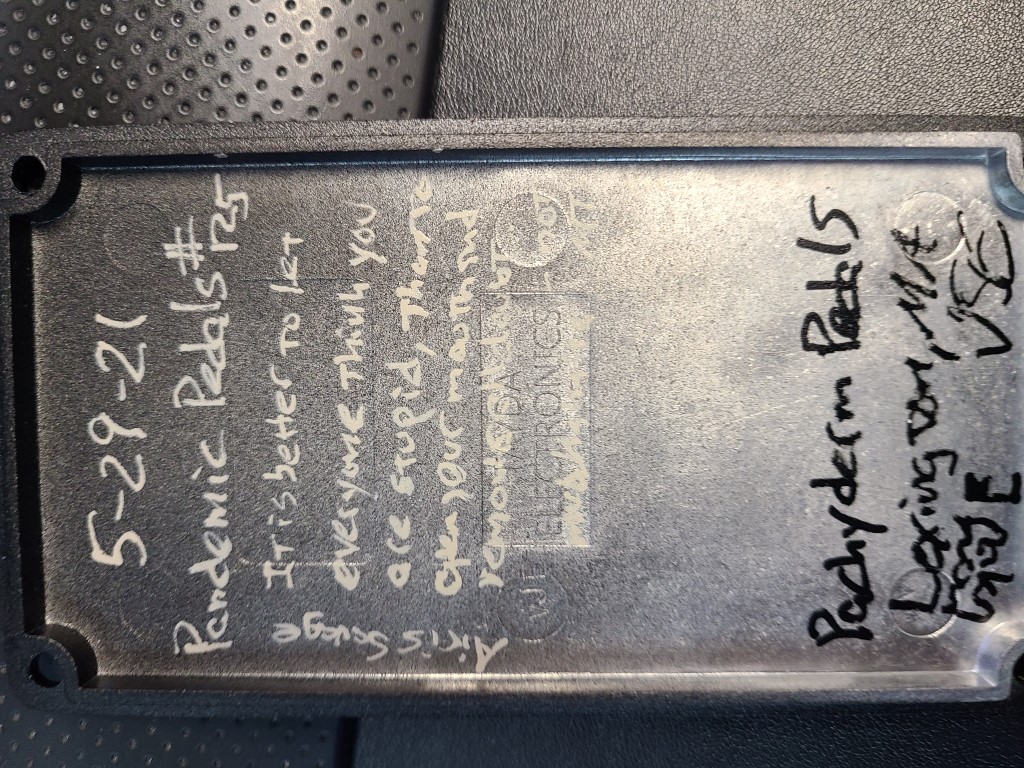 5-29-21
Pandemic Pedals #125
It is better to let
everyone think you
are stupid, than to
open your mouth and
remove all doubt
Airis Savage
TAYDA
ELECTRONICS
Pachyderm Pedals
Lexington, MA